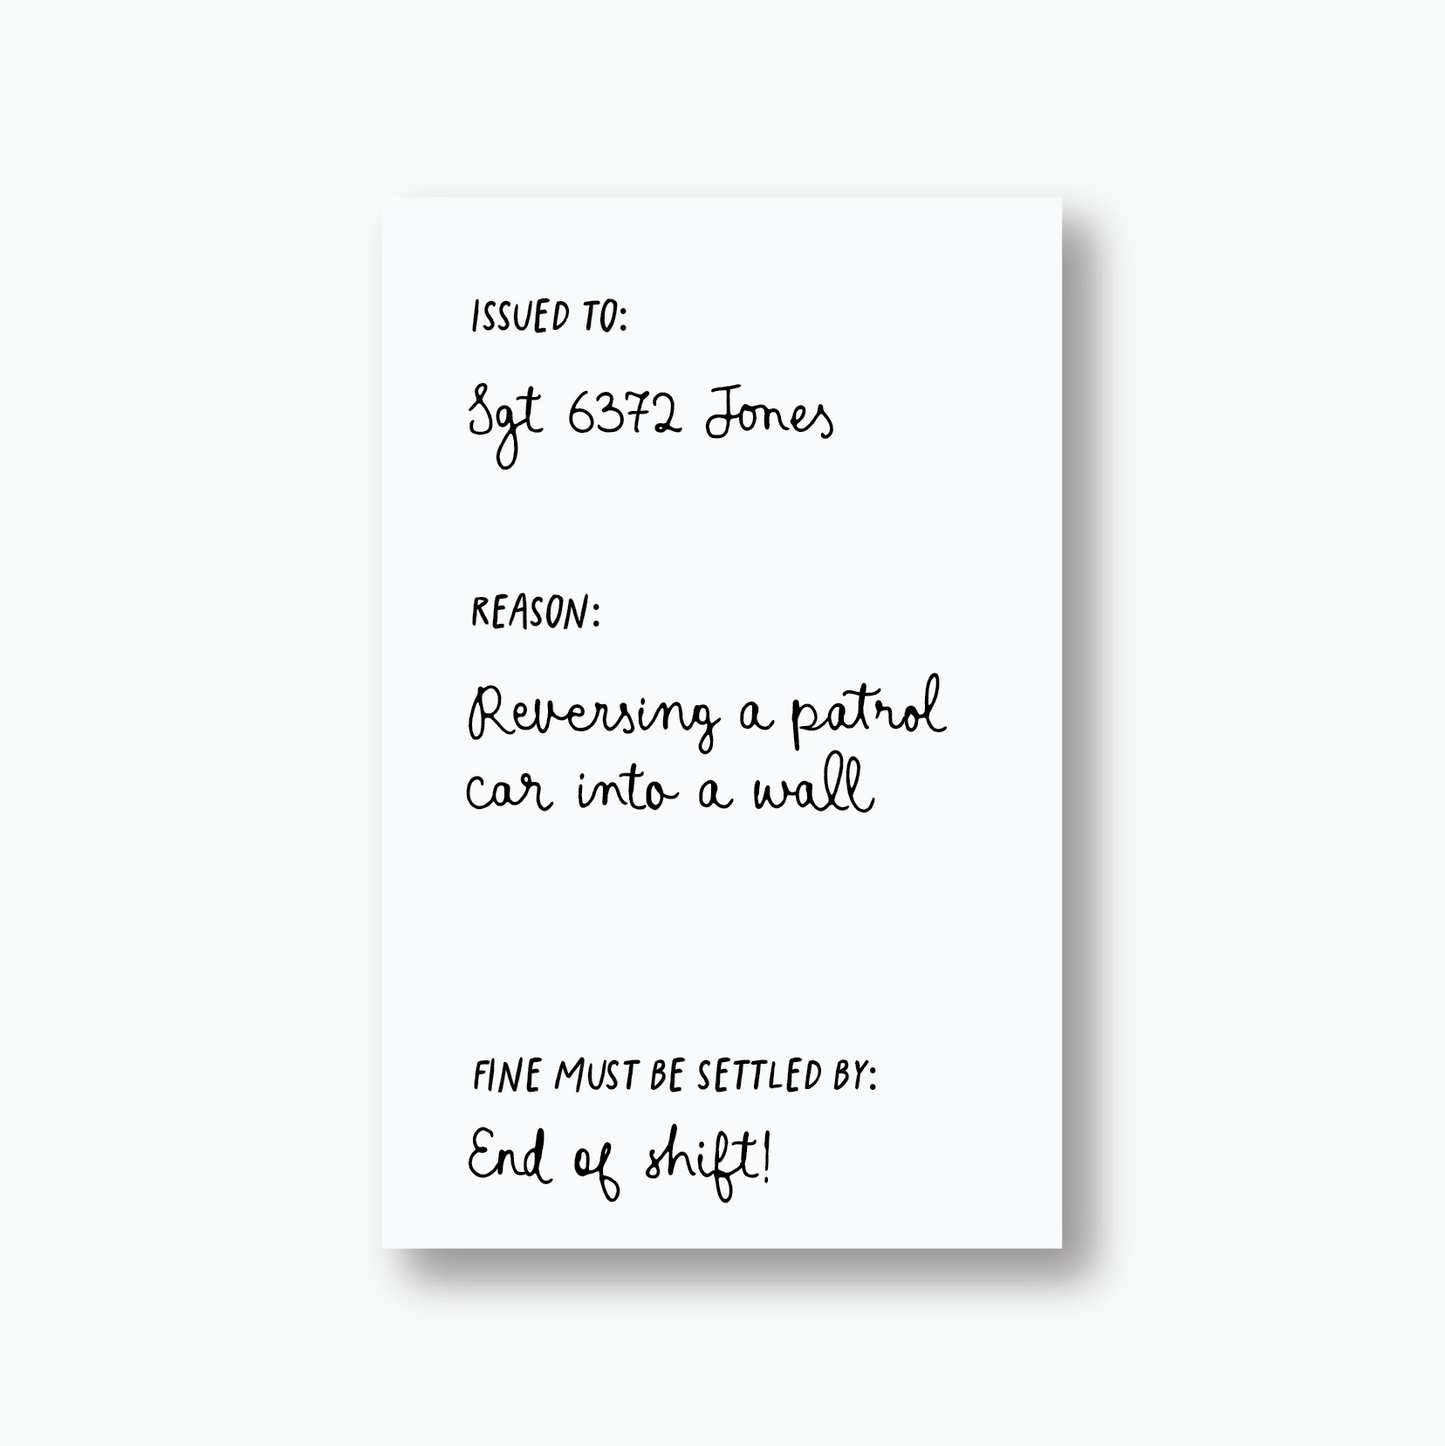 ISSUED TO:
Sgt 6372 Jones
REASON:
Reversing a patrol
car into a wall
FINE MUST BE SETTLED BY:
End of shift!